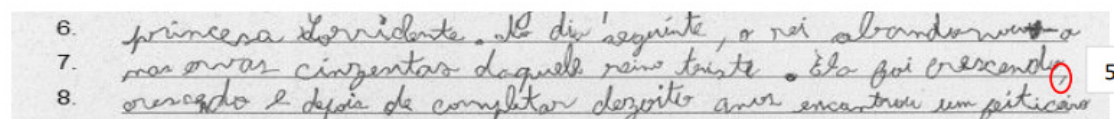 6. princesa Sorridente. No dia seguinte, o rei abandonou-a
7. nas ervas cinzentas daquele reino triste. Ela foi crescendo,
8. crescendo e depois de completar dezoito anos encontrou um feiticeiro
5